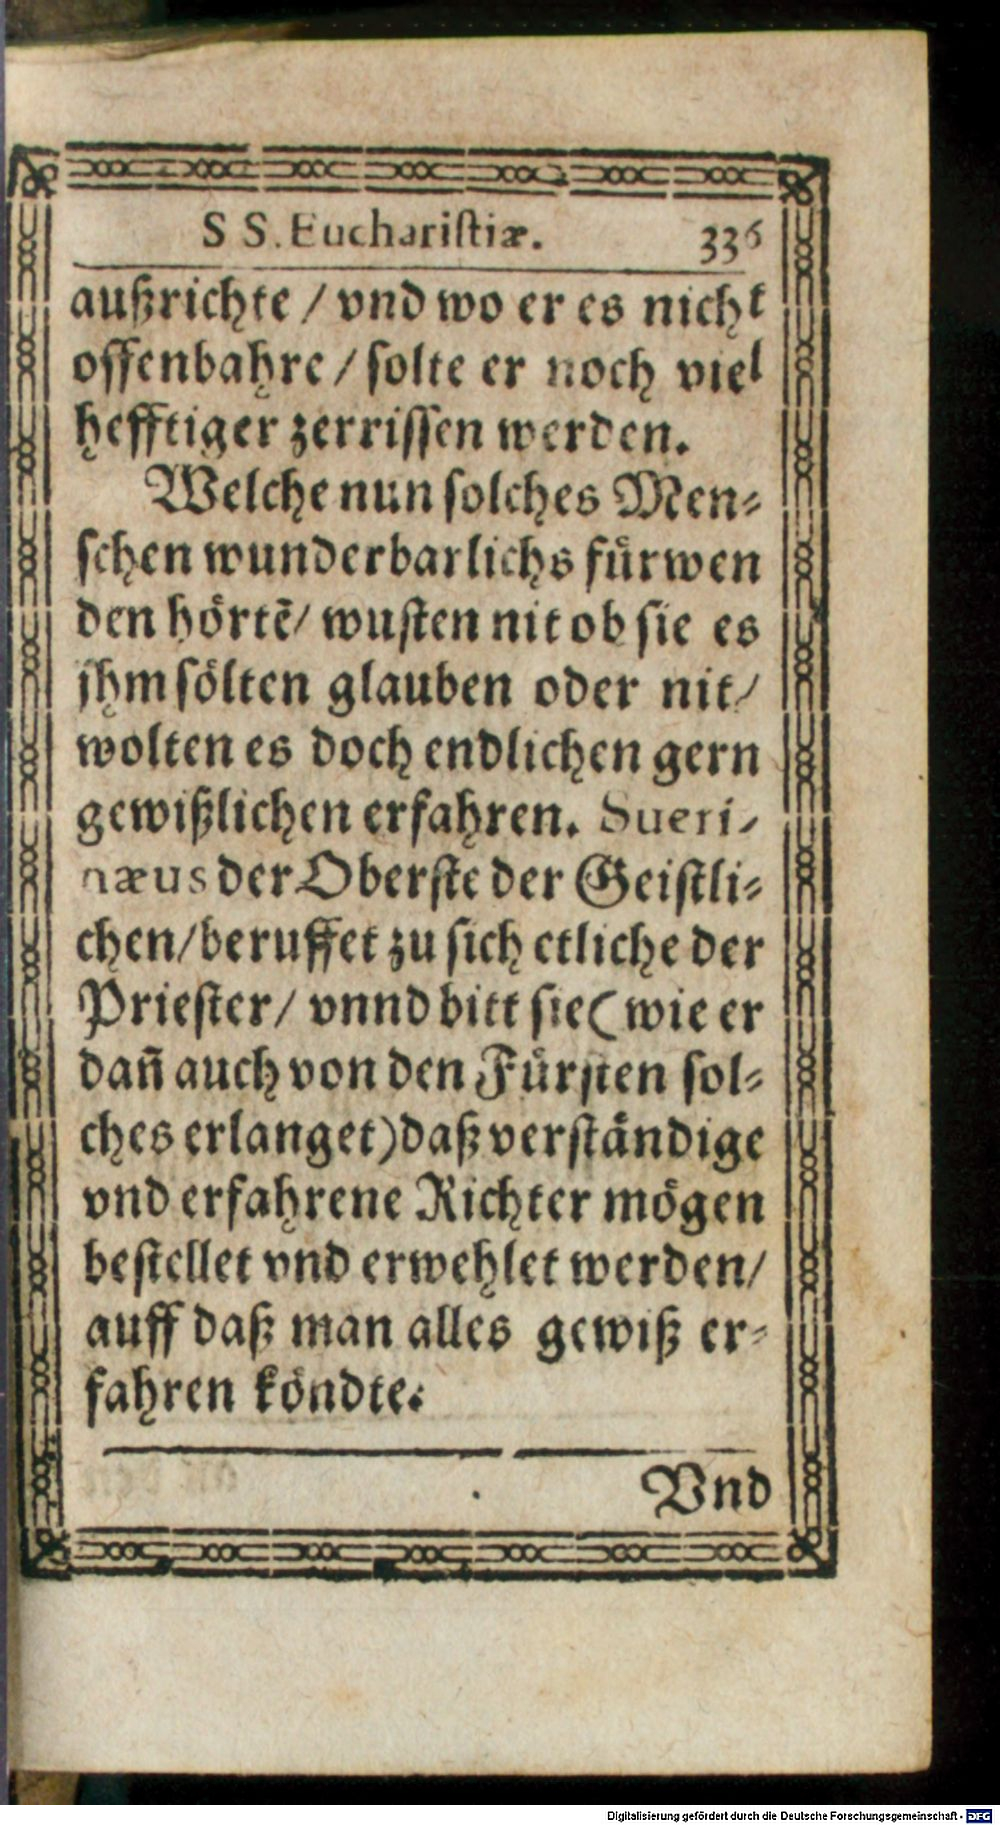 S S. Euchariſtiæ. 336
außrichte / vnd wo er es nicht
offenbahre / ſolte er noch viel
hefftiger zerriſſen werden.
Welche nun ſolches Men⸗
ſchen wunderbarlichs fürwen
den hörtē/ wuſten nit ob ſie es
jhm ſölten glauben oder nit/
wolten es doch endlichen gern
gewißlichen erfahren. Sueri-
næus der Oberſte der Geiſtli⸗
chen/beruffet zu ſich etliche der
Prieſter/ vnnd bitt ſie( wie er
dañ auch von den Fürſten ſol⸗
ches erlanget)daß verſtändige
vnd erfahrene Richter mögen
beſtellet vnd erwehlet werden/
auff daß man alles gewiß er⸗
fahren köndte.
Vnd
Digitalisierung gefördert durch die Deutsche Forschungsgemeinschaft - DFG